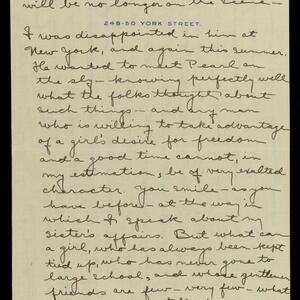 will be no longer on the scene—
248-50 YORK STREET.
I was disappointed in him at
New York, and again this summer.
He wanted to meet Pearl on
the sly—knowing perfectly well
what the folks thought about
such things—and any man
who is willing to take advantage
of a girl's desire for freedom
and a good time cannot, in
my estimation, be of very exalted
character. You smile—as you
have before—at the way in
which I speak about my
sister's affairs. But what can
a girl, who has always been kept
tied up, who has never gone to
large school, and whose gentlemen
friends are few—very few—what